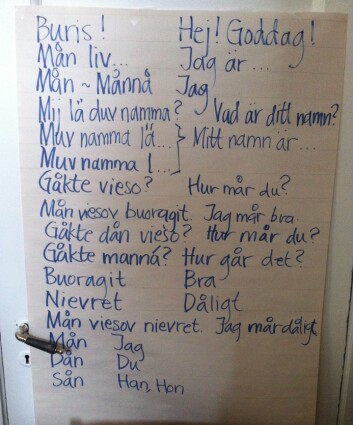 Buris! Hej! Goddag!
Mån liv... Jag är...
Mån ~ Månnå Jag
Mij lä duv namma? Vad är ditt namn?
Muv namma lä... } Mitt namn är...
Muv namma l...
Gåkte vieso? Hur mår du?
Mån viesov buoragit. Jag mår bra.
Gåkte dån vieso? Hur mår du?
Gåkte manná? Hur går det?
Buoragit Bra
Nievret Dåligt
Mån viesov nievret. Jag mår dåligt
Mån Jag
Dån Du
Sån Han, Hon